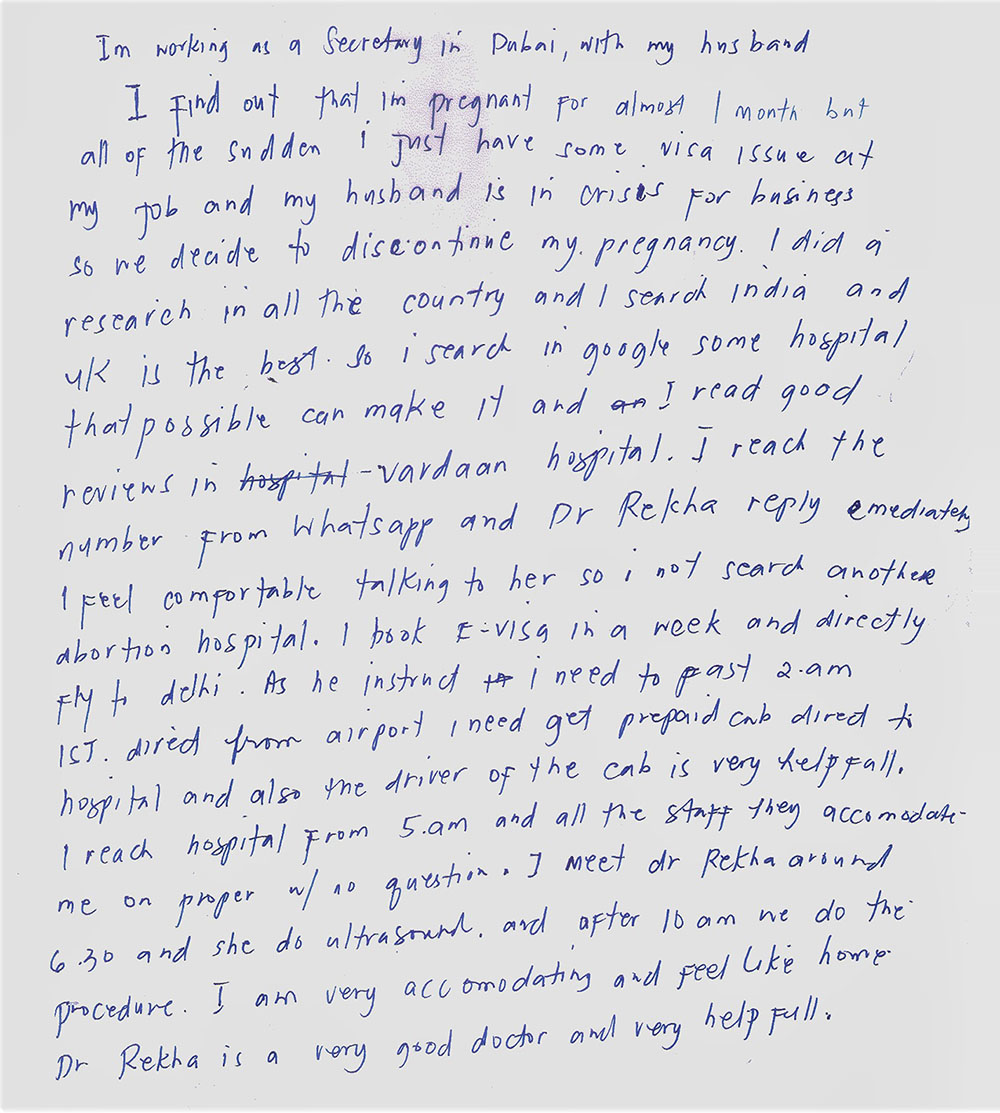 Im working as a Secretary in Dubai, with my husband
I Find out that im pregnant for almost 1 month but
all of the sudden i just have some visa issue at
my job and my husband is in crisis for business
so we decide to discontinue my pregnancy. I did a
research in all the country and I search india and
UK is the best. so i search in google some hospital
that possible can make it and an I read good
reviews in hospital - vardaan hospital. I reach the
number from Whatsapp and Dr Rekha reply emediately
I feel comfortable talking to her so i not search another
abortion hospital. I book E-visa in a week and directly
Fly to delhi. As he instruct i need to fast 2.am
IST. direct from airport i need get prepaid cab direct to
hospital and also the driver of the cab is very helpfull.
I reach hospital from 5.am and all the staff they accomodate
me on proper w/ no question. I meet dr Rekha around
6.30 and she do ultrasound. and after 10 am we do the
procedure. I am very accomodating and feel like home
Dr Rekha is a very good doctor and very helpfull.